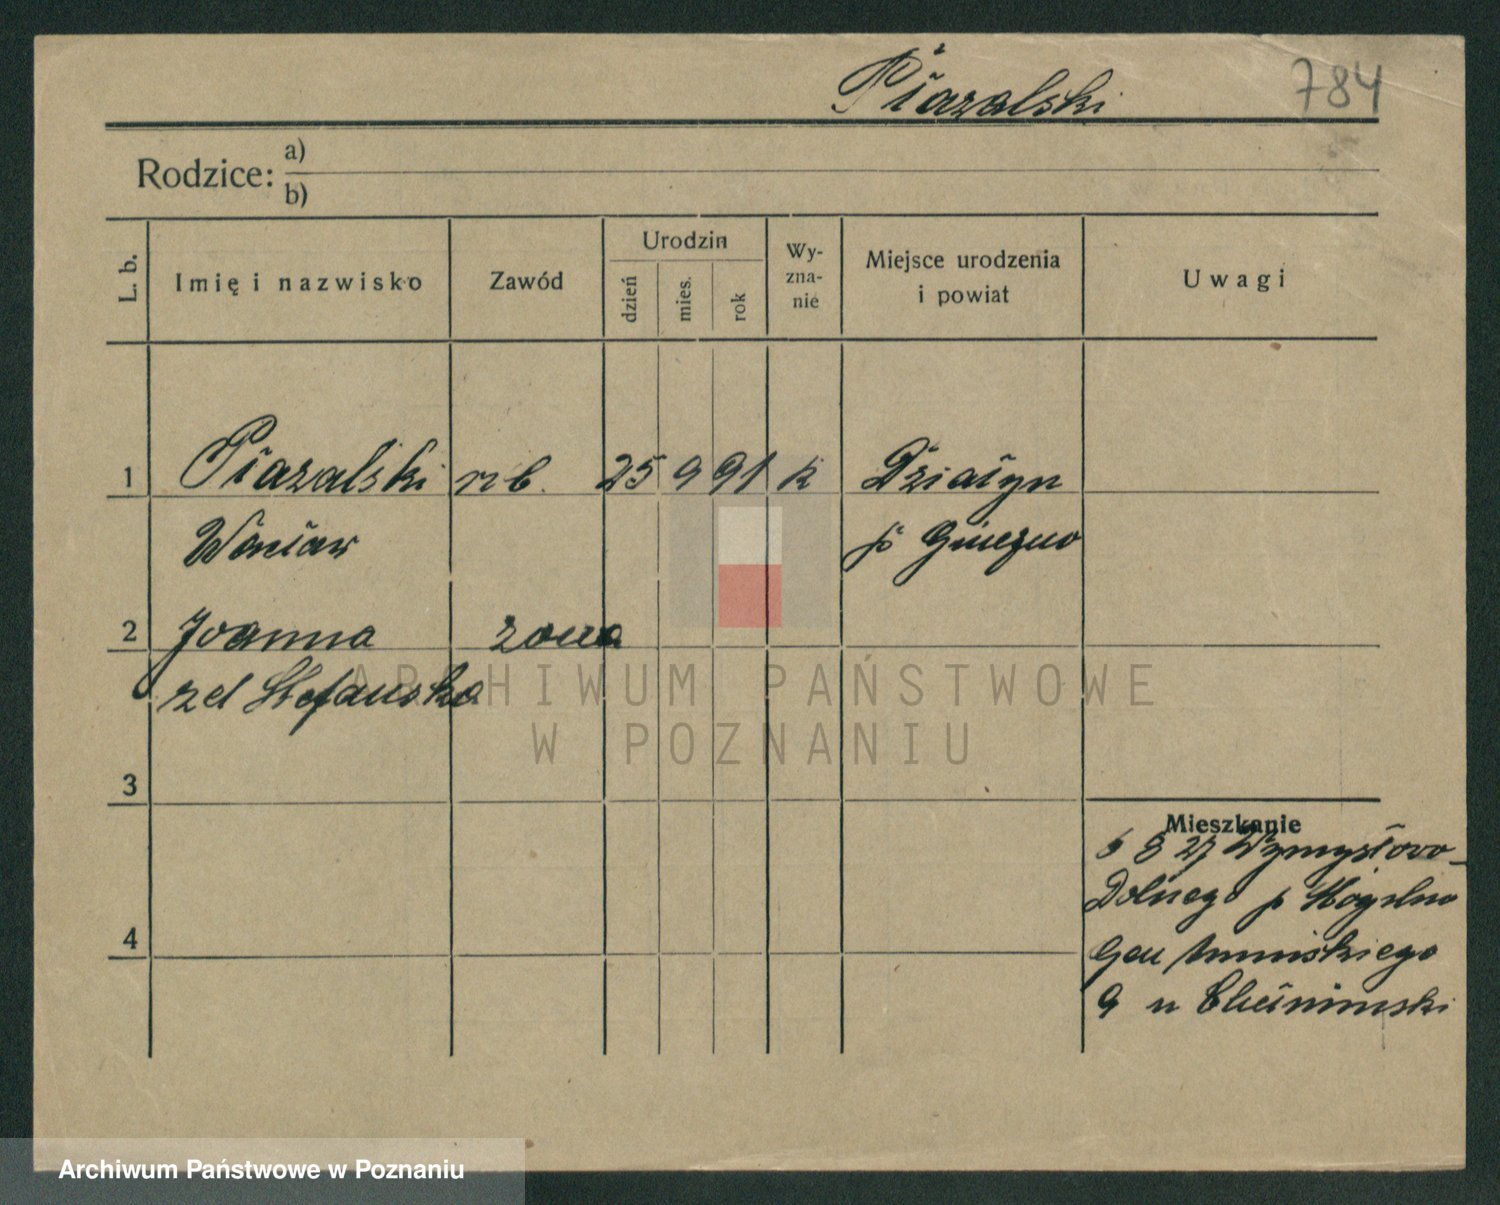 Piazalski 784
Rodzice: a)
b)
L. b. Imię i nazwisko Zawód Urodzin dzień mies. rok Wy-zna-nie Miejsce urodzenia i powiat Uwagi
1 Piazalski rb. 25 9 91 k Działyn
p Gniezno
2 Joanna żona
zd Stefańska
3
Mieszkanie
6 8 27 Wymysłowo-
Dolnego p Mogilno
4
Gen
9 u
ARCHIWUM PAŃSTWOWE
W POZNANIU
Archiwum Państwowe w Poznaniu